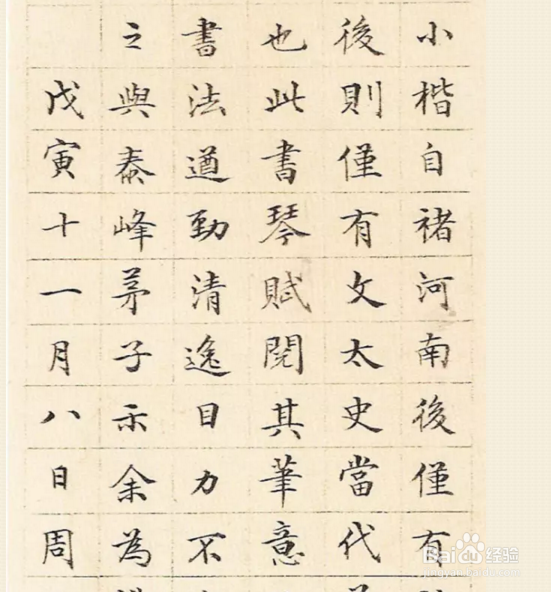 小楷自褚河南後僅有
後則僅有文太史當代
也此書琴賦閱其筆意
書法遒勁清逸目力不
之與泰峰茅子示余為
戊寅十一月八日周
Baidu 经验
jingyan.baidu.com